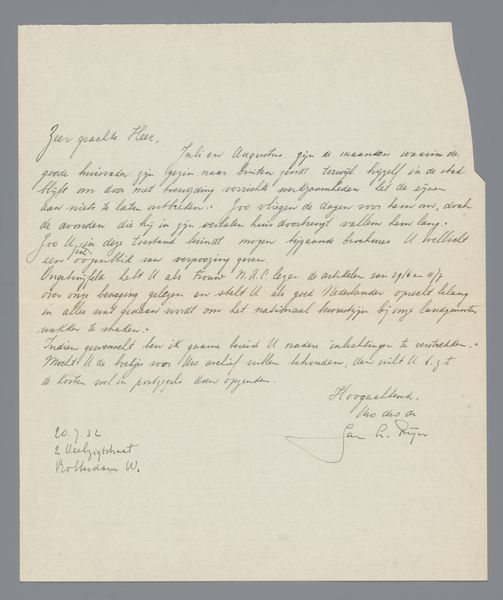 Zeer geachte Heer,
Juli en Augustus zijn de maanden waarin de
goede huisvader zijn gezin naar buiten zendt terwijl hijzelf in de stad
blijft om door met werkzaamheden het de zijnen
aan niets te laten ontbreken. Zoo vliegen de dagen voor hem om, doch
de avonden die hij in zijn verlaten huis doorbrengt vallen hem lang.
Zoo U zich in deze toestand bevindt mogen bijgaande brochures U wellicht
een oogenblik van verpoozing geven.
Ongetwijfeld hebt U als trouw N.R.C. lezer de artikelen van en
over onze beweging gelezen en stelt U als goed Nederlander oprecht belang
in alles wat gedaan wordt om het nationaal bewustzijn bij onze landgenooten
wakker te maken.
Indien gewenscht ben ik gaarne bereid U nadere inlichtingen te verstrekken.
Mocht U de boekjes voor Uw archief willen behouden, dan wilt U
de kosten wel in postzegels doen opzenden.
Hoogachtend,
Uw dw dr
Jan
20.7.32
2
Rotterdam W.